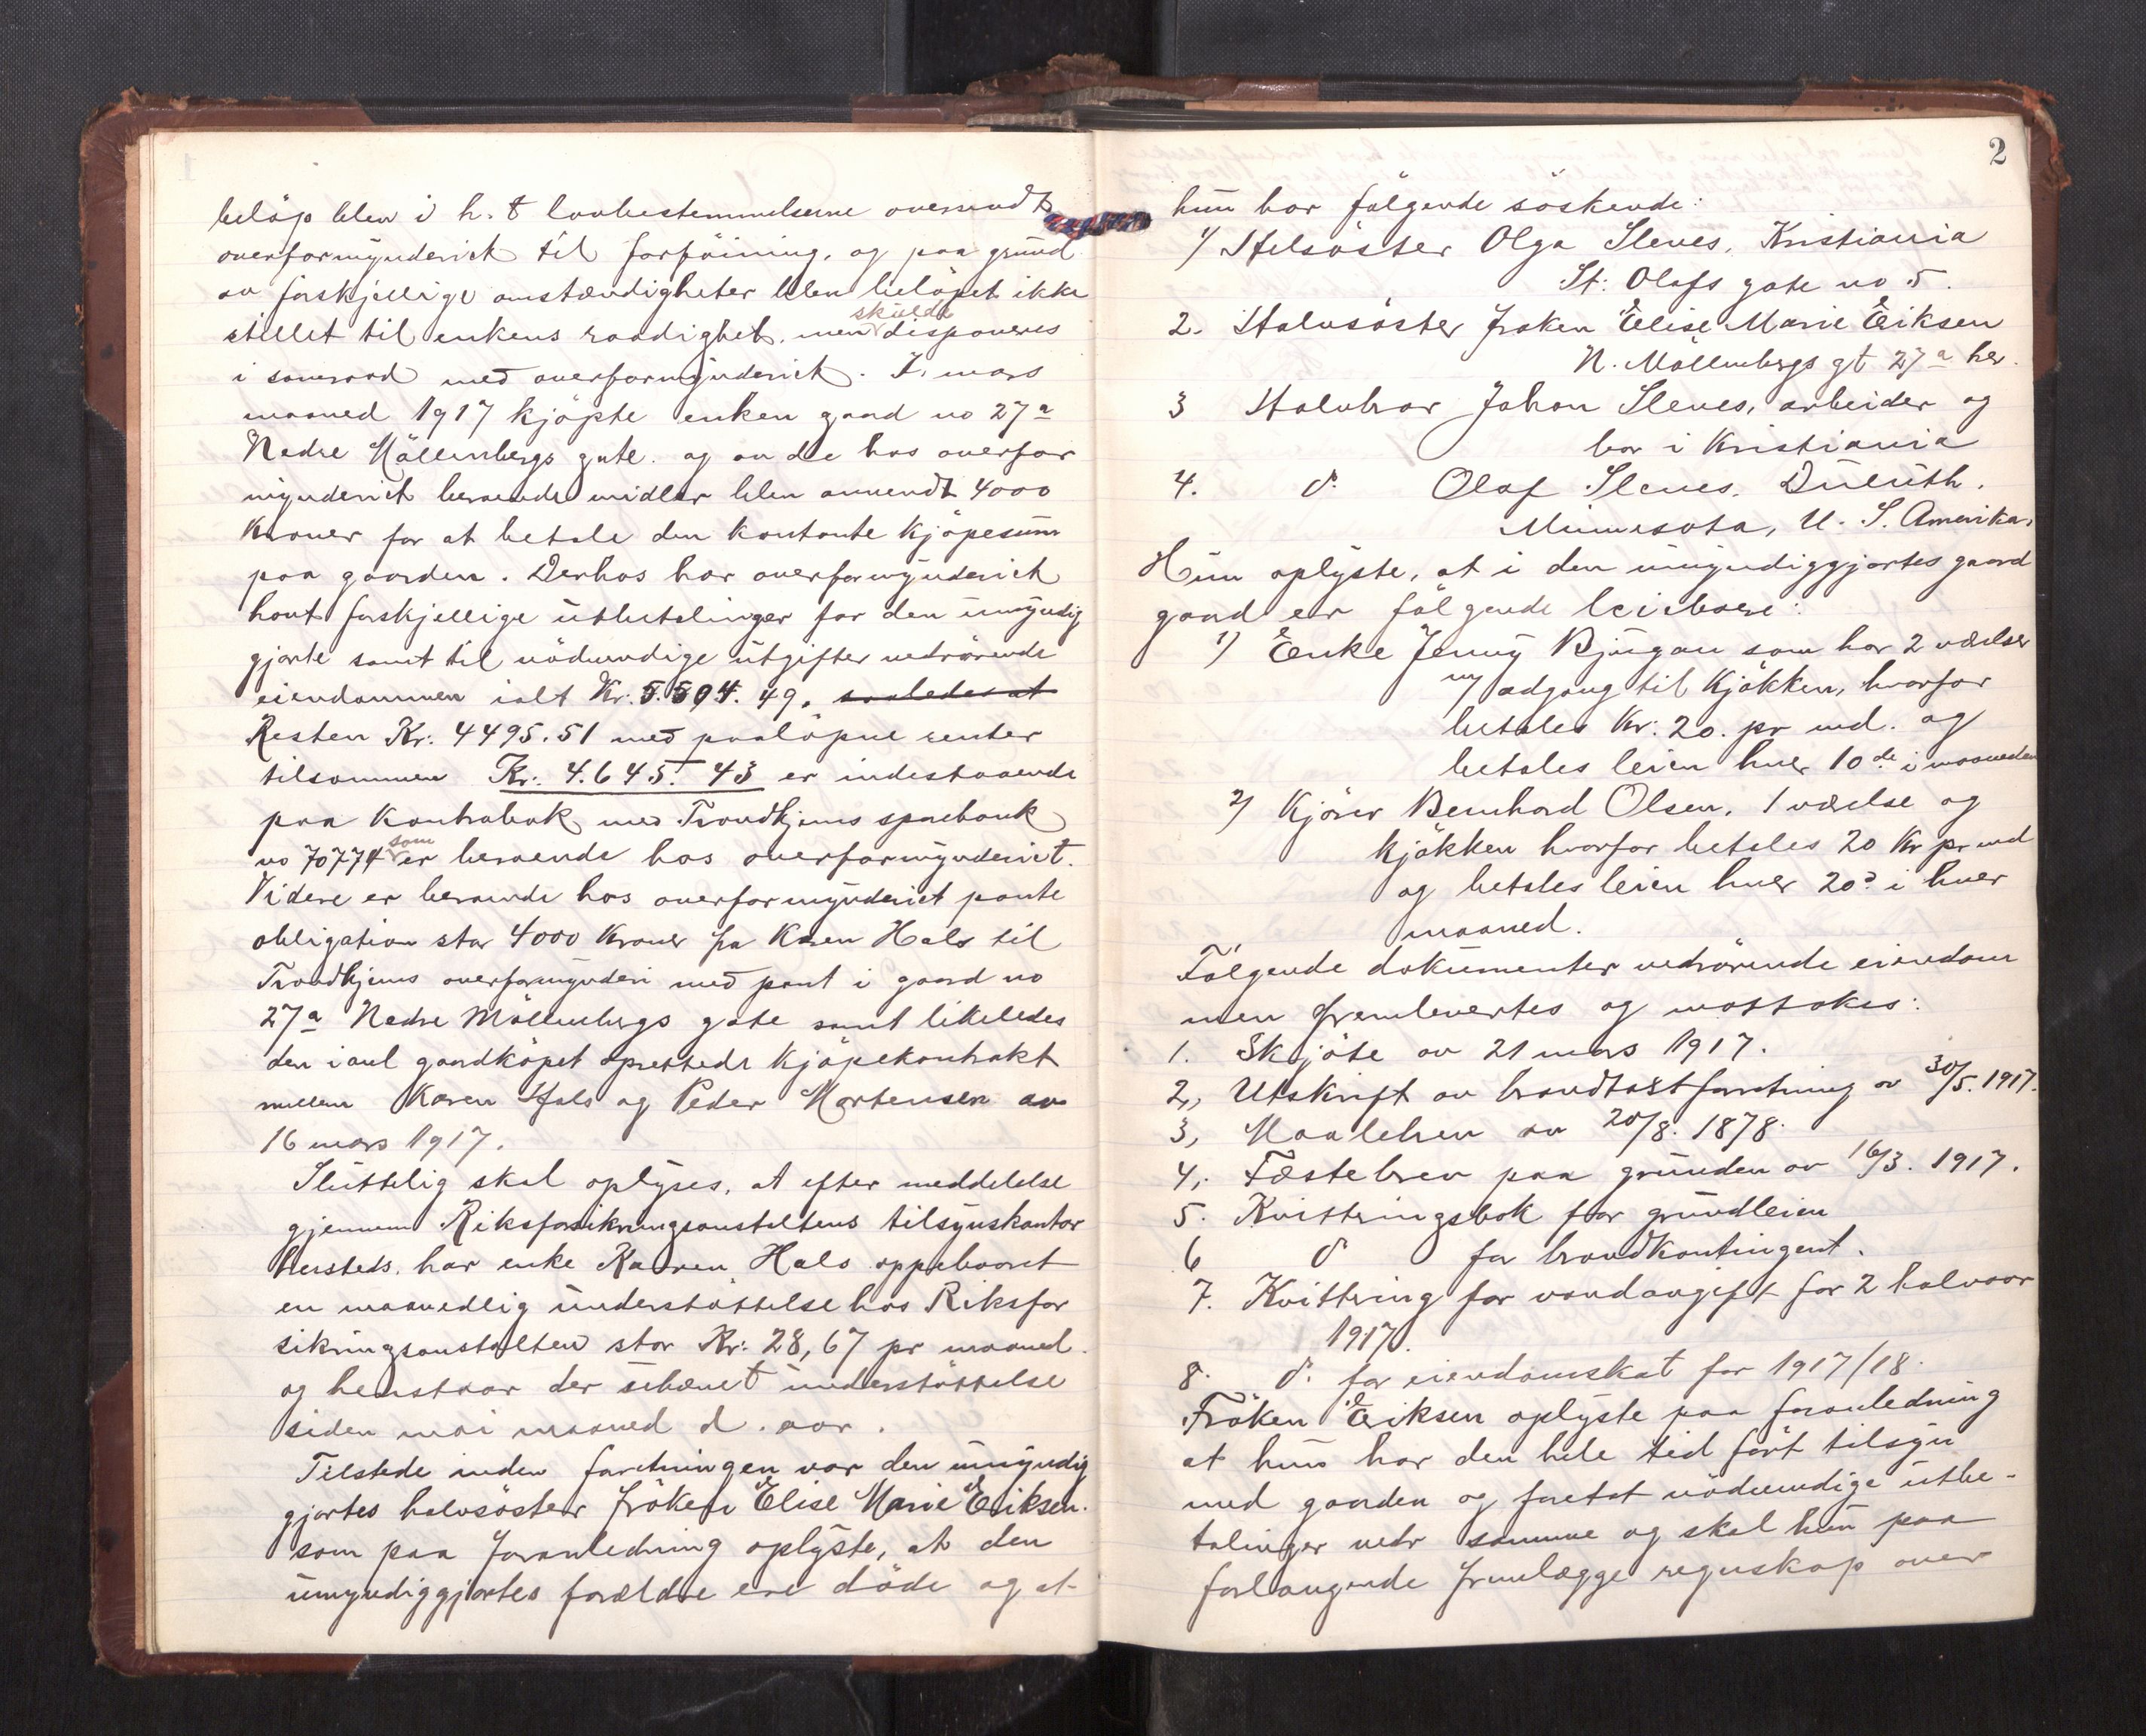 beløp blev i h. t lovbestemmelserne oversendt
overformynderiet til forføining, og paa grund
av forskjellige omstændigheter blev beløpet ikke
stillet til enkens raadighet, men skulde disponeres
i samraad med overformynderiet. I mars
maaned 1917 kjøpte enken gaard no 27a
Nedre Møllenbergs gate. og av de hos overfor
mynderiet beroende midler blev anvendt 4000
Kroner for at betale den kontante kjøpesum
paa gaarden. Derhos har overformynderiet
havt forskjellige utbetalinger for den umyndig
gjorte samt til nødvendige utgifter vedrørende
eiendommen ialt Kr. 5.504.49. saaledes at
Resten Kr: 4495.51 med paaløpne renter
tilsammen Kr: 4.645.43 er indestaaende
paa Kontrabok med Trondhjems sparebank
no 70774 som er beroende hos overformynderiet.
Videre er beroende hos overformynderiet pante
obligation stor 4000 Kroner fra Karen Hals til
Trondhjems overformynderi med pant i gaard no
27a Nedre Møllenbergs gate samt likeledes
den i anl gaardkøpet oprettede kjøpekontrakt
mellem Karen Hals og Peder Mortensen av
16 mars 1917.
Sluttelig skal oplyses, at efter meddelelse
gjennem Riksforsikringsanstaltens tilsynskontor
hersteds. har enke Karen Hals oppebaaret
en maanedlig understøttelse hos Riksfor
sikringsanstalten stor Kr: 28,67 pr maaned.
og henstaar der uhævet understøttelse
siden mai maaned d. aar.
Tilstede under forretningen var den umyndig
gjortes halvsøster frøken Elise Marie Eriksen.
som paa foranledning oplyste, at den
umyndiggjortes forældre ere døde og at
2
hun har følgende søskende:
1) Halvsøster Olga Stenes, Kristiania
St: Olafs gate no 5.
2. Halvsøster frøken Elise Marie Eriksen
N. Møllenbergs gt 27a her.
3 Halvbror Johan Stenes, arbeider og
bor i Kristiania
4. do Olaf Stenes, Duluth.
Minnesota, U. S. Amerika.
Hun oplyste, at i den umyndiggjortes gaard
gaard er følgende leieboere:
1) Enke Jenny Bjugan som har 2 værelser
m/ adgang til Kjøkken, hvorfor
betales Kr: 20. pr md. og
betales leien hver 10de i maaneden
2) Kjører Bernhard Olsen, 1 værelse og
kjøkken hvorfor betales 20 Kr pr md
og betales leien hver 20d i hver
maaned.
Følgende dokumenter vedrørende eiendom
men fremlevertes og mottokes:
1. Skjøte av 21 mars 1917.
2, Utskrift av brandtakstforretning av 30/5. 1917.
3, Maalebrev av 20/8. 1878.
4, Fæstebrev paa grunden av 16/3. 1917.
5. Kvitteringsbok for grundleien
6 do for brandkontingent.
7. Kvittering for vandavgift for 2 halvaar
1917.
8. do. for eiendomskat for 1917/18.
Frøken Eriksen oplyste paa foranledning
at hun har den hele tid ført tilsyn
med gaarden og foretat nødvendige utbe-
talinger vedr samme og skal hun paa
forlangende fremlægge regnskap over